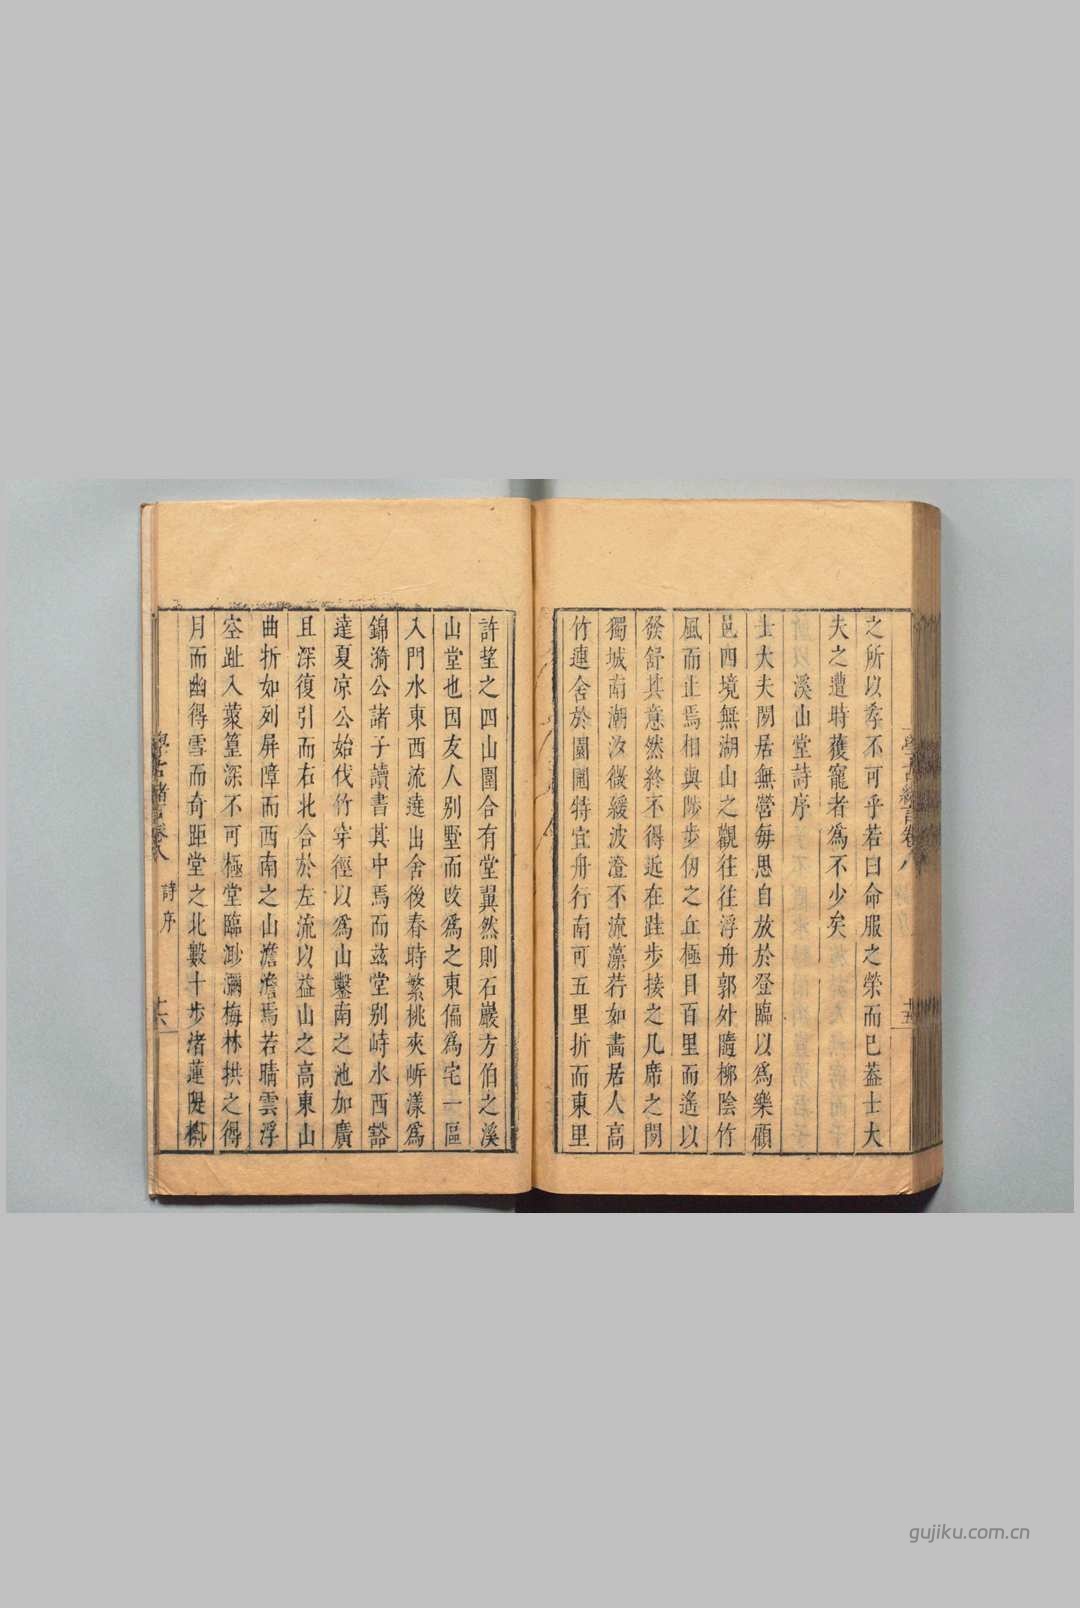 之所以孝不可乎若曰命服之榮而已葢士大
夫之遭時獲寵者為不少矣
溪山堂詩序
士大夫閒居無營每思自放於登臨以為樂顧
邑四境無湖山之觀往往浮舟郭外隨柳陰竹
風而止焉相與陟步仞之丘極目百里而遙以
發舒其意然終不得近在跬步接之几席之間
獨城南潮汐微緩波澄不流藻荇如畵居人高
竹連舍於園圃特宜舟行南可五里折而東里
學古緒言卷八
十五
許望之四山圍合有堂翼然則石巖方伯之溪
山堂也因友人別墅而改為之東偏為宅一區
入門水東西流遶出舍後春時繁桃夾岍漾為
錦漪公諸子讀書其中焉而兹堂别峙水西谿
逵夏凉公始伐竹穿徑以為山鑿南之池加廣
且深復引而右北合於左流以益山之高東山
曲折如列屏障而西南之山澹澹焉若晴雲浮
空趾入叢篁深不可極堂臨渺瀰梅林拱之得
月而幽得雪而奇距堂之北數十步渚蓮隄桞
學古緒言卷八
詩序
十六
gujiku.com.cn